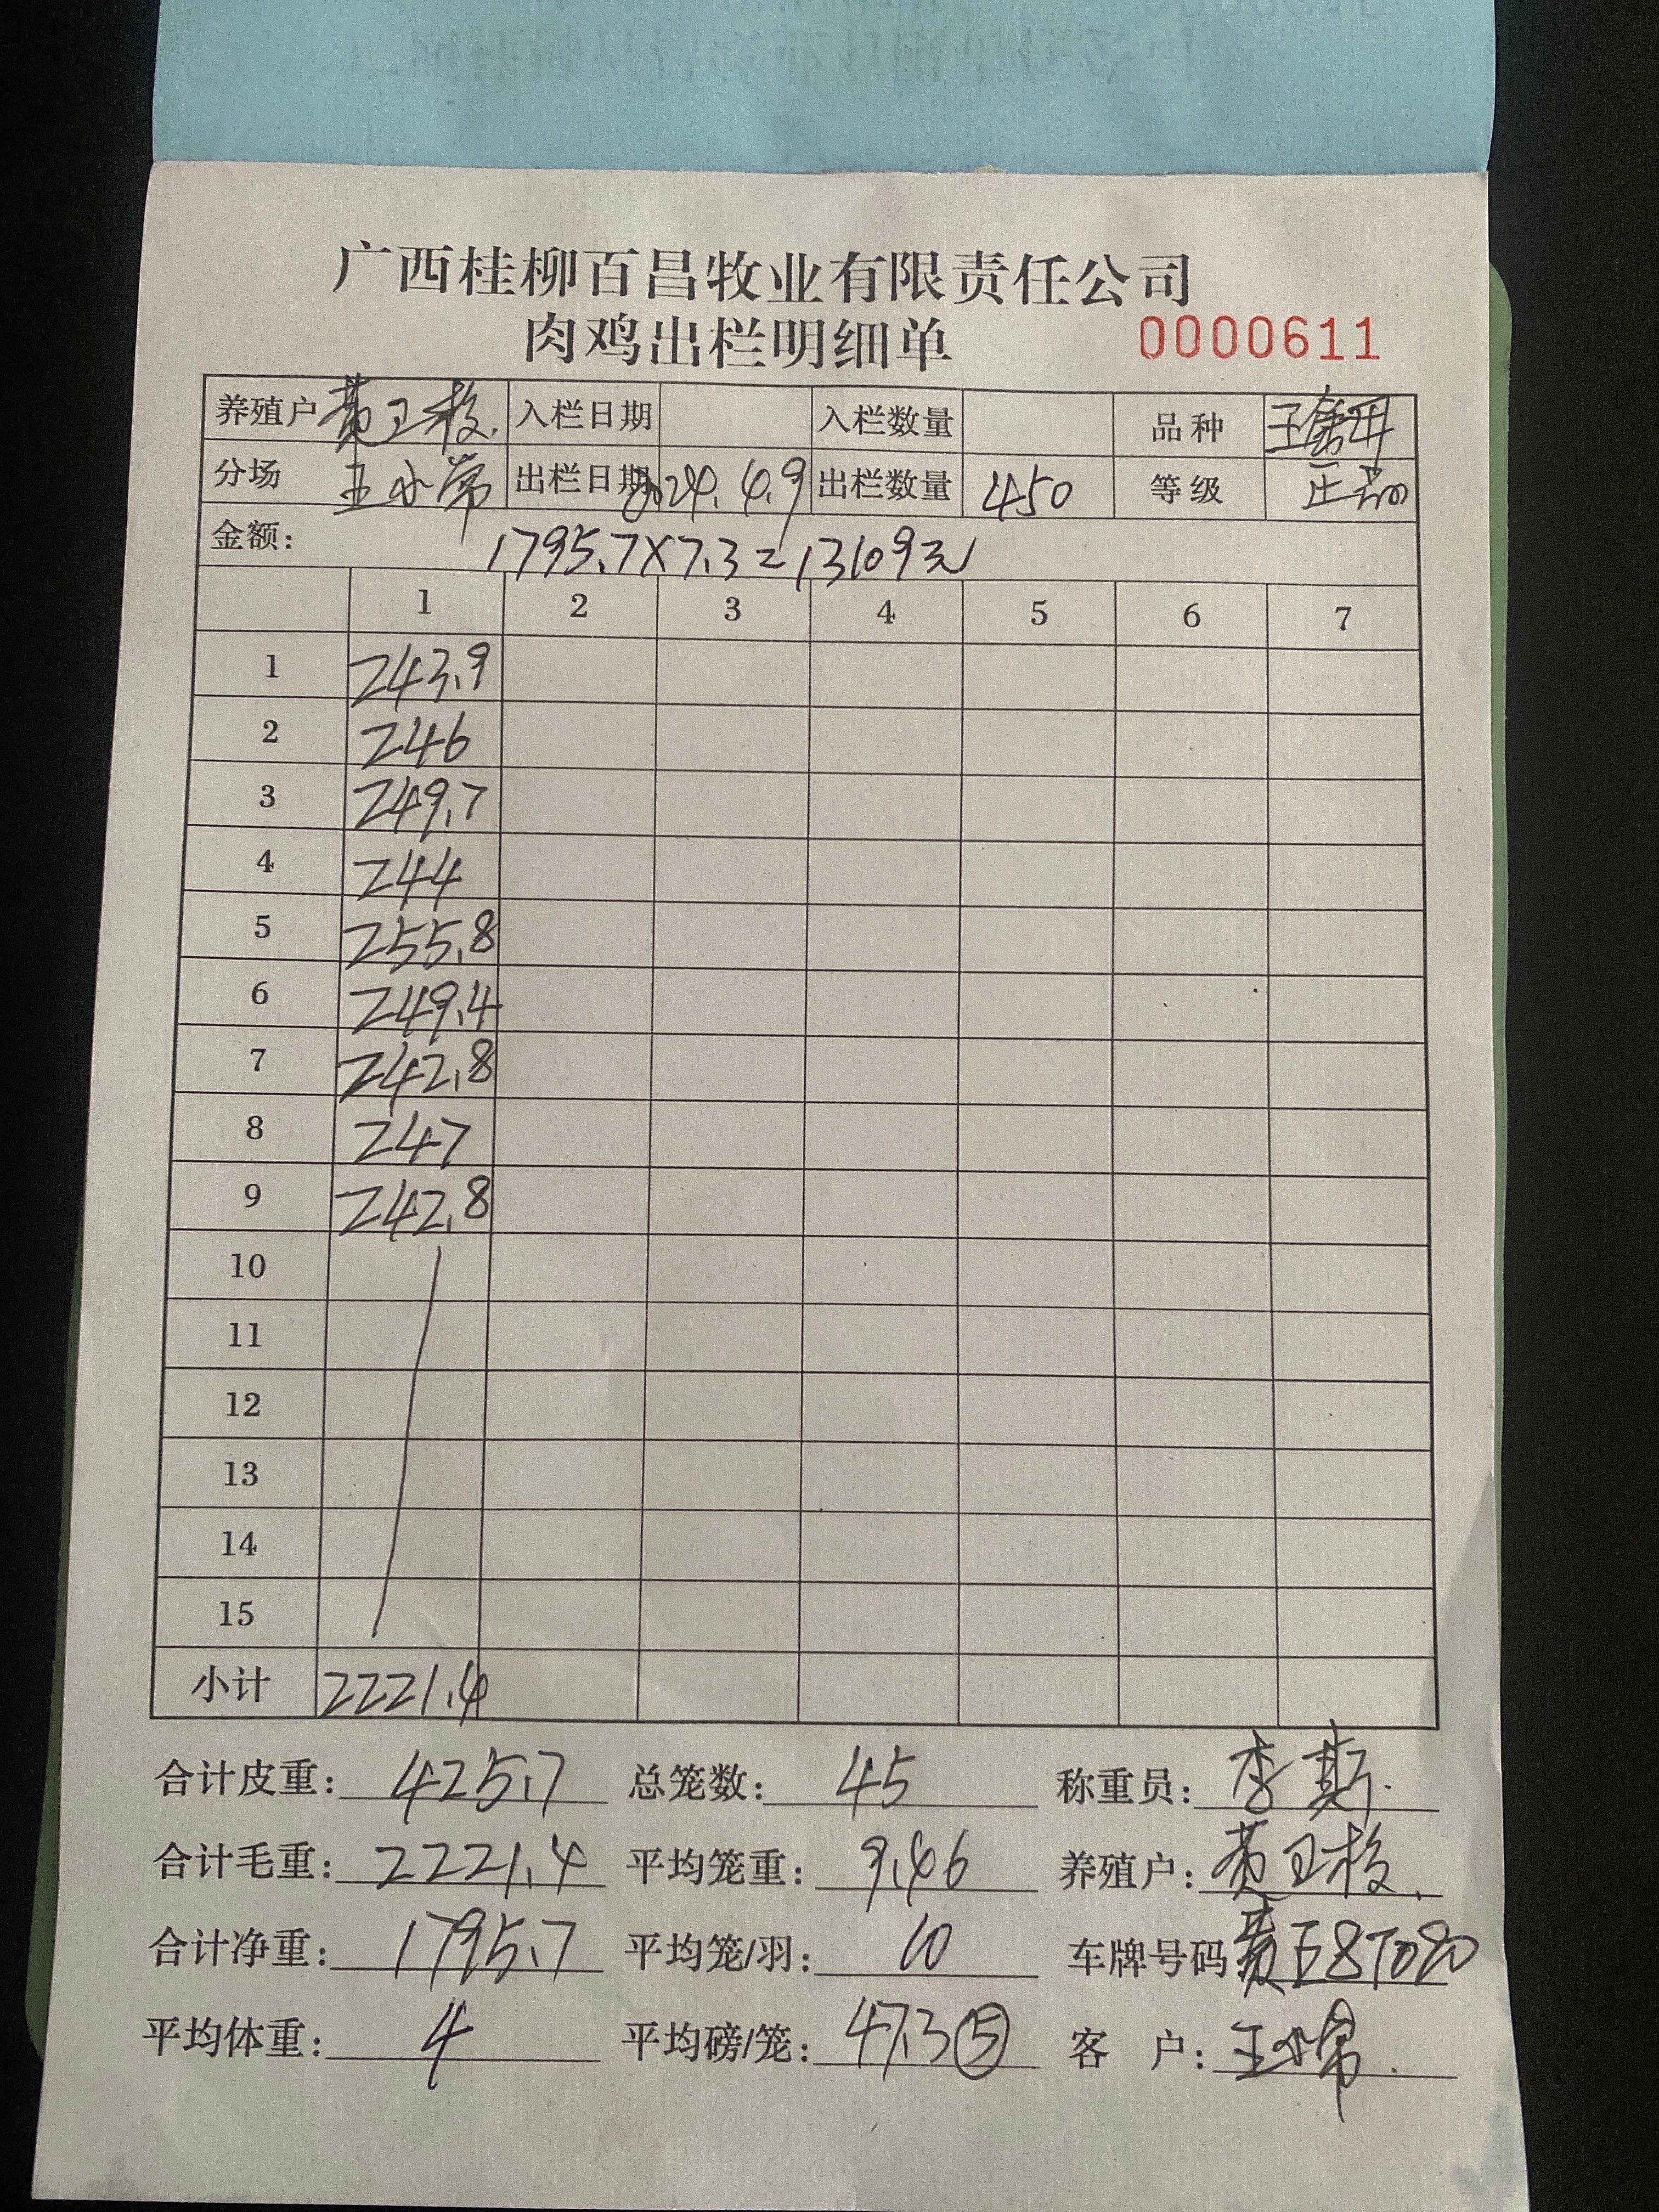 广西桂柳百昌牧业有限责任公司
肉鸡出栏明细单 0000611
养殖户 黄卫枝 入栏日期 入栏数量 品种
分场 王小常 出栏日期 2024.4.9 出栏数量 450 等级
金额: 1795.7×7.3=13109元
1 2 3 4 5 6 7
1 243.9
2 246
3 249.7
4 244
5 255.8
6 249.4
7 242.8
8 247
9 242.8
10
11
12
13
14
15
小计 2221.4
合计皮重: 425.7 总笼数: 45 称重员: 李斯
合计毛重: 2221.4 平均笼重: 9.46 养殖户: 黄卫枝
合计净重: 1795.7 平均笼/羽: 10 车牌号码
平均体重: 4 平均磅/笼: 47.3⑤ 客 户: 王小常